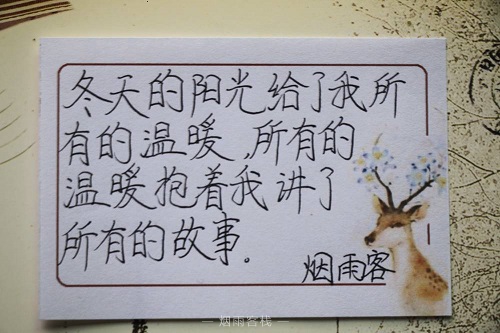 冬天的阳光给了我所
有的温暖,所有的
温暖抱着我讲了
所有的故事。
烟雨客
— 烟雨客栈 —